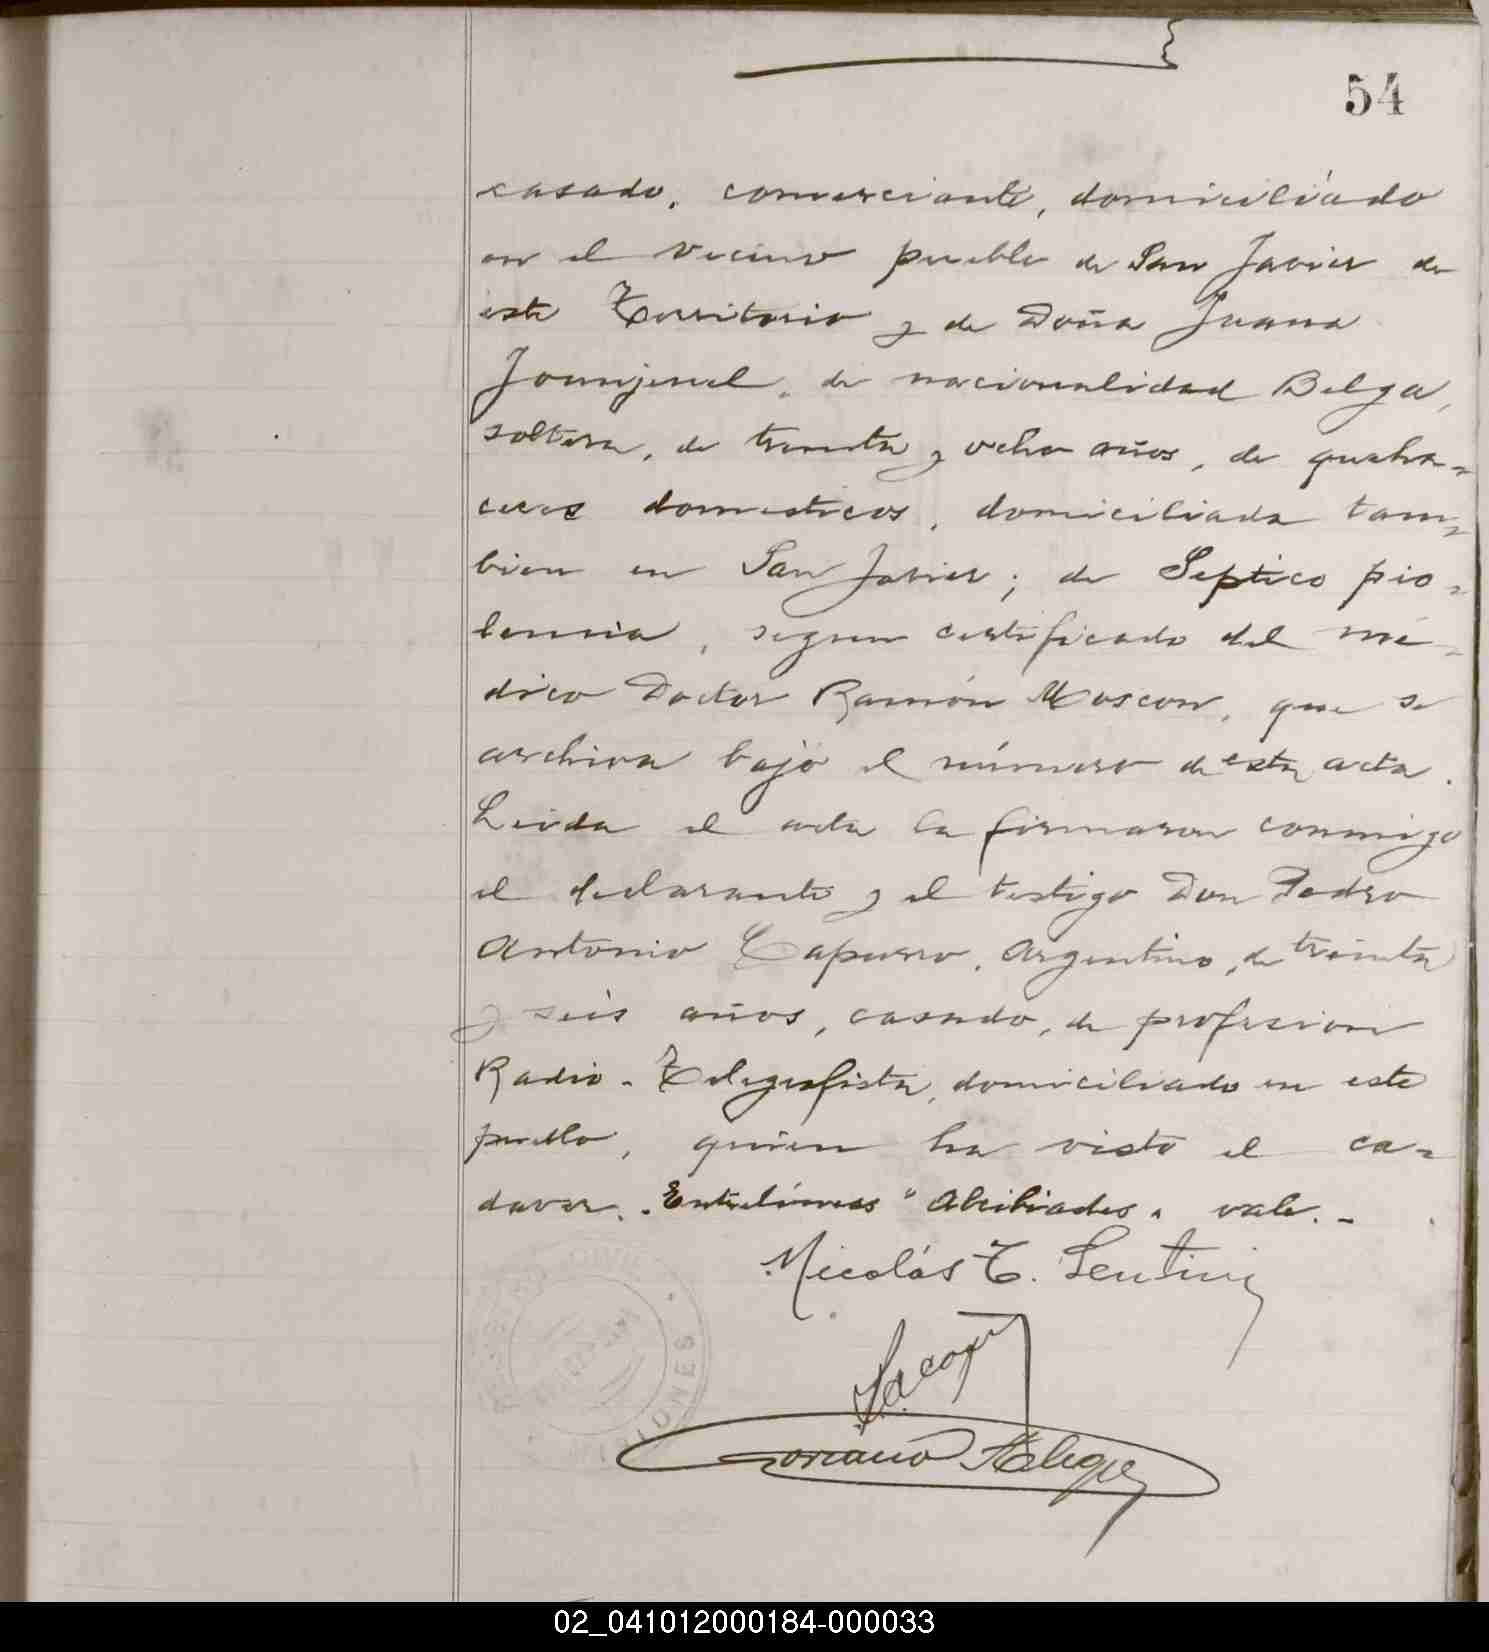 54
casado, comerciante, domiciliado
en el vecino pueblo de San Javier de
este Territorio y de Doña Juana
de nacionalidad Belga,
soltera, de treinta y ocho años, de queha-
ceres domesticos, domiciliada tam-
bien en San Javier; de Septico pio-
hemia, segun certificado del mé-
dico Doctor Ramón Moscon, que se
archiva bajo el número de esta acta.
Leida el acta la firmaron conmigo
el declarante y el testigo Don Pedro
Antonio Capurro, Argentino, de treinta
y seis años, casado, de profesion
Radio-Telegrafista, domiciliado en este
pueblo, quien ha visto el ca-
daver. Entrelíneas "Alcibiades" vale.-
Nicolás T.
MISIONES
02_041012000184-000033